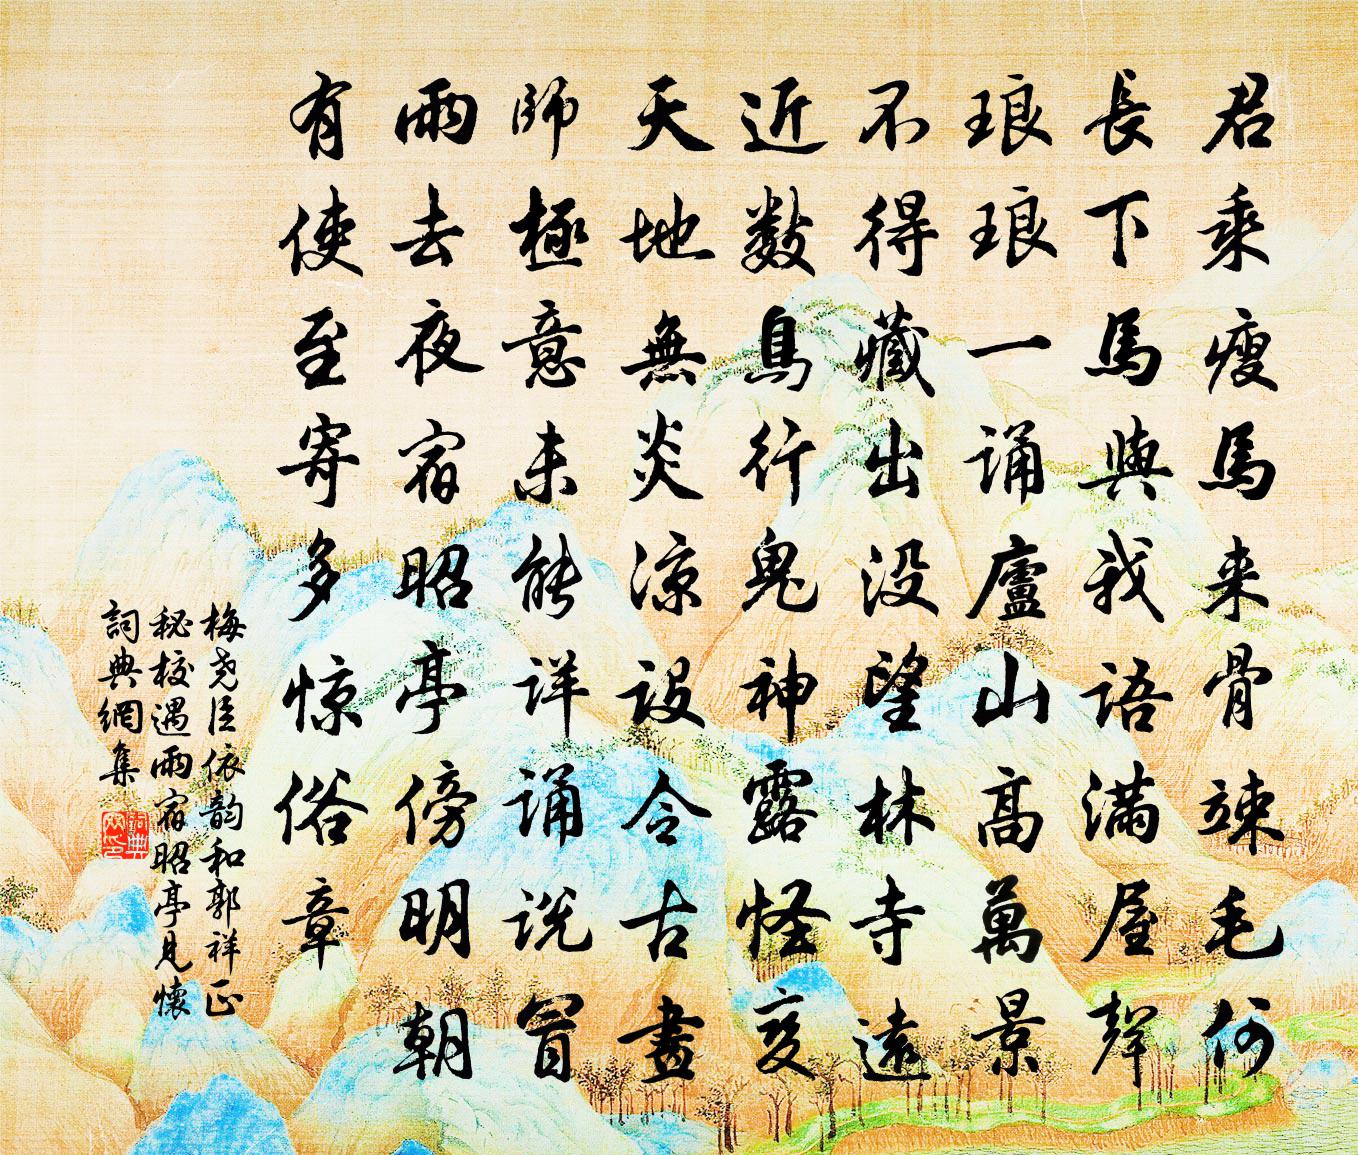 君乘瘦馬来骨竦毛何
長下馬與我語滿屋聲
琅琅一誦廬山高萬景
不得藏出没望林寺遠
近數鳥行鬼神露怪變
天地無炎凉設令古畫
師極意未能詳誦說冒
雨去夜宿昭亭傍明朝
有使至寄多惊俗章
梅尧臣依韵和郭祥正
秘校遇雨宿昭亭見懷
詞典網集